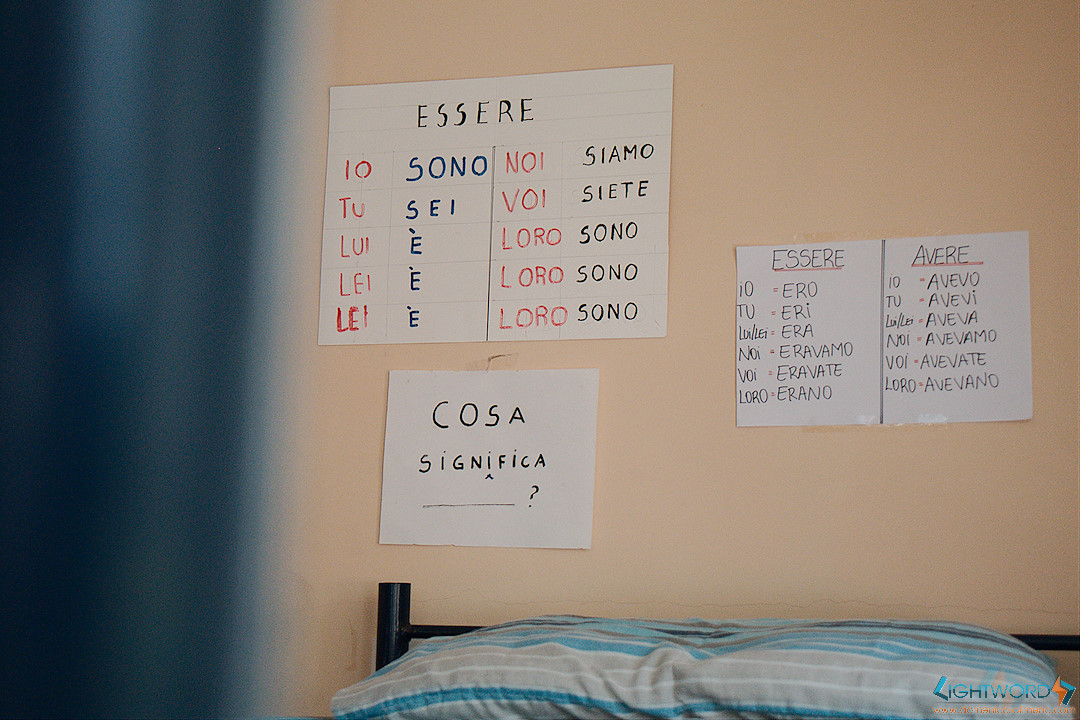 ESSERE
IO SONO NOI SIAMO
TU SEI VOI SIETE
LUI È LORO SONO
LEI È LORO SONO
LEI È LORO SONO
COSA
SIGNIFICA
________ ?
ESSERE
IO = ERO
TU = ERI
LUI/LEI = ERA
NOI = ERAVAMO
VOI = ERAVATE
LORO = ERANO
AVERE
IO = AVEVO
TU = AVEVI
LUI/LEI = AVEVA
NOI = AVEVAMO
VOI = AVEVATE
LORO = AVEVANO
LIGHTWORDS